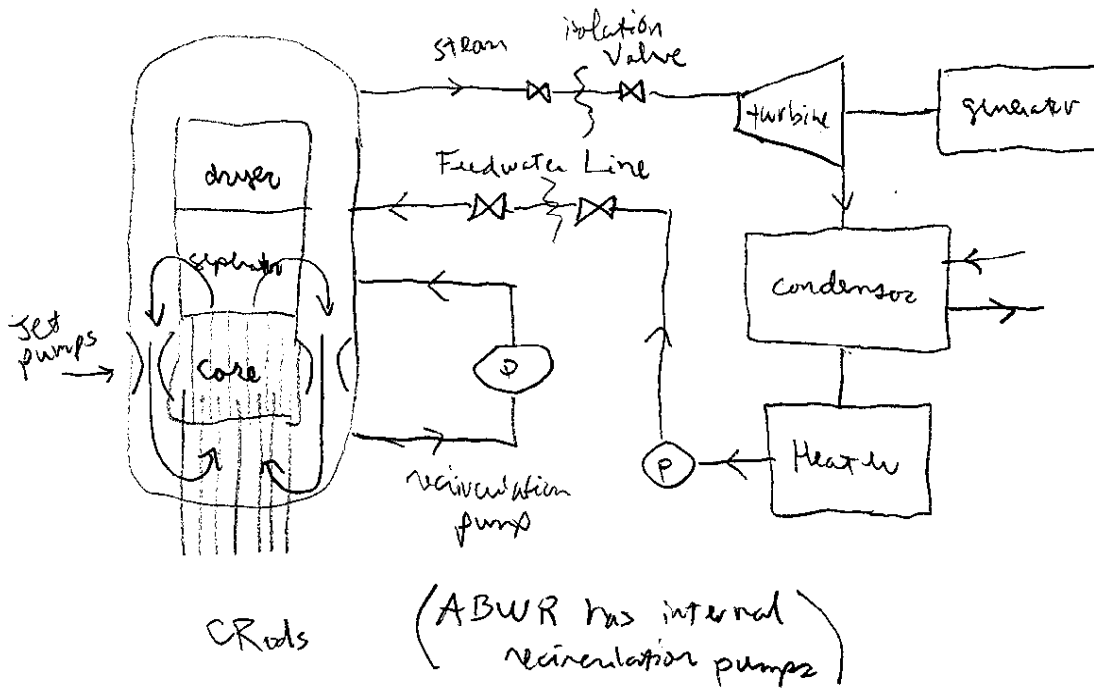 steam
isolation
Valve
turbine
generator
Feedwater Line
dryer
seperator
condensor
Jet
pumps
core
P
P
Heater
recirculation
pump
CRods
(ABWR has internal
recirculation pumps)